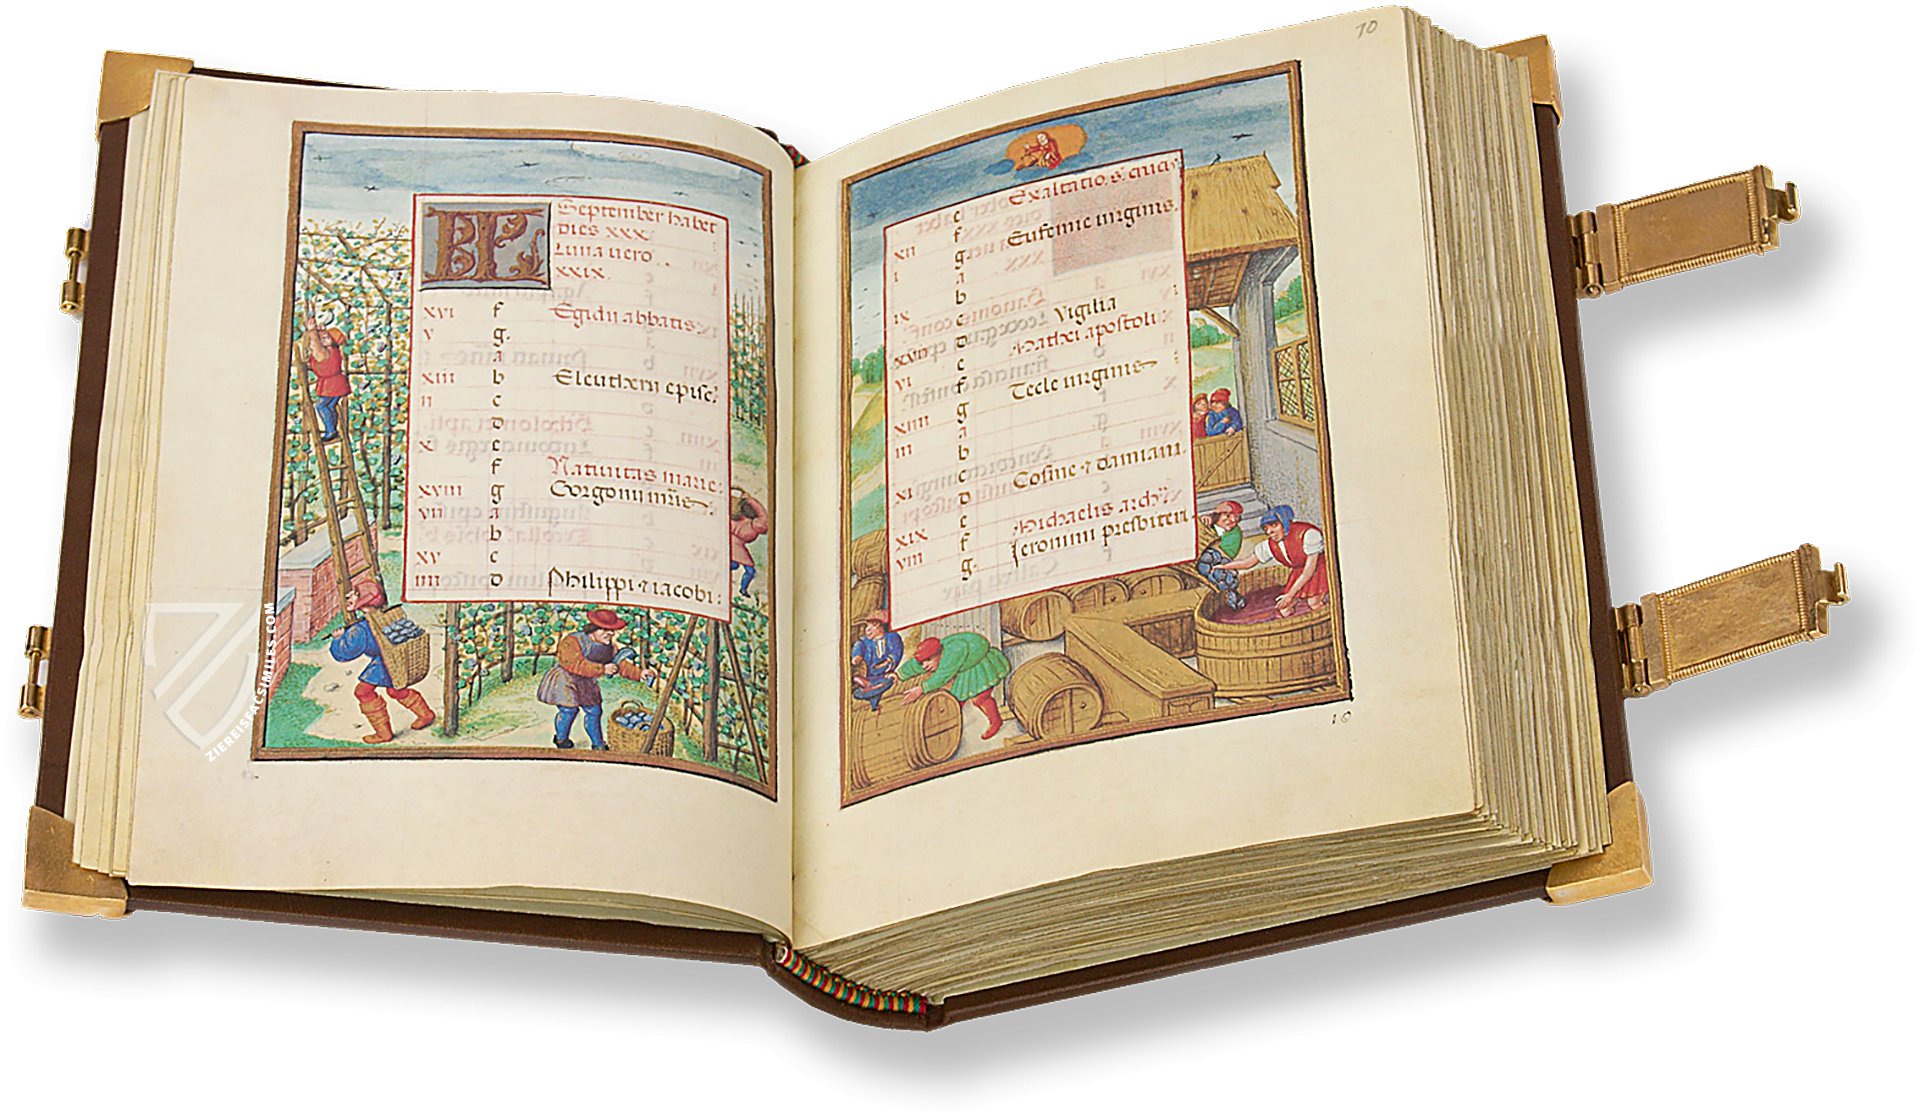 KL
September habet
dies xxx
Luna vero
xxix.
xvi f Egidii abbatis
v g.
a
xiii b Eleutherii episc.
ii c
d
x e
f Nativitas marie
xviii g Gorgonii
vii a
b
xv c
iiii d Philippi ⁊ iacobi
70
e Exaltatio s. cruc
xii f Eufemie virginis.
i g
a
b
ix c Vigilia
d Mathei apostoli
vi e
f Tecle virginis
xiiii g
iii a
b
xi c Cosme ⁊ damiani.
d
xix e Michaelis arch
viii f Jeronimi presbiteri
g.
10
ZIEREISFACSIMILES.COM